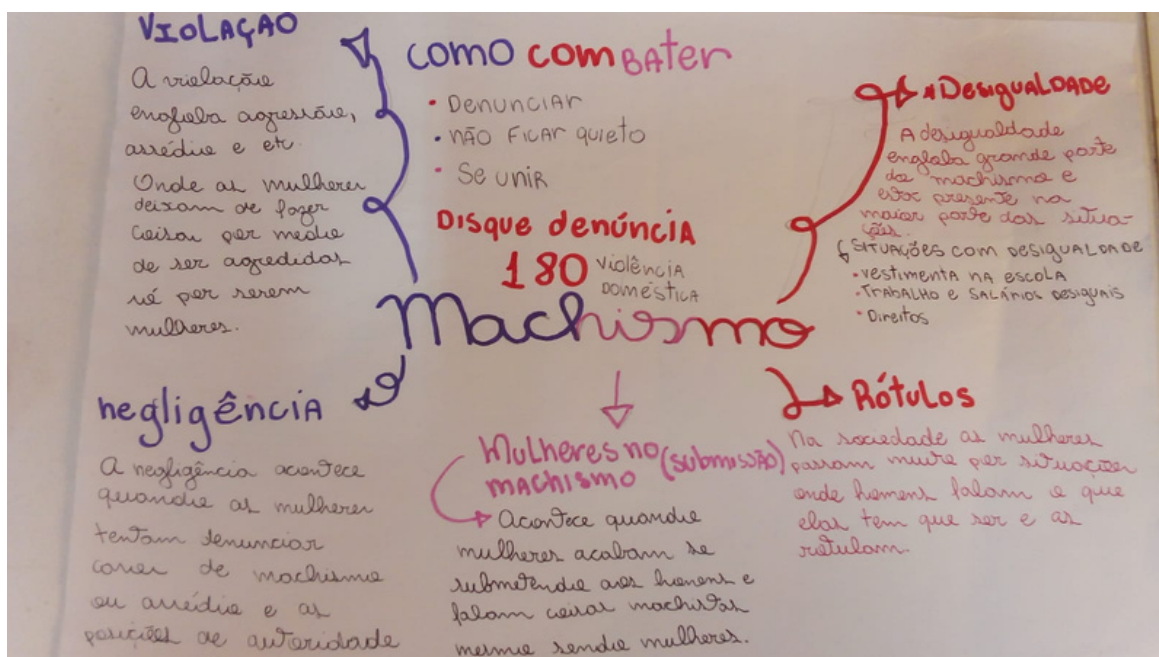 VIOLAÇÃO
A violação
engloba agressão,
assédio e etc.
Onde as mulheres
deixam de fazer
coisas por medo
de ser agredidas
só por serem
mulheres.
COMO COMBATER
• DENUNCIAR
• NÃO FICAR quieto
• Se UNIR
Disque denúncia
180 Violência
doméstica
Desigualdade
A desigualdade
engloba grande parte
do machismo e
estar presente na
maior parte das situa-
ções.
SITUAÇÕES COM DESIGUALDADE
• Vestimenta na escola
• Trabalho e salários desiguais
• Direitos
Machismo
negligência
A negligência acontece
quando as mulheres
tentam denunciar
casos de machismo
ou assédio e as
posições de autoridade
Mulheres no (submissão)
machismo
Acontece quando
mulheres acabam se
submetendo aos homens e
falam coisas machistas
mesmo sendo mulheres.
Rótulos
Na sociedade as mulheres
passam muito por situações
onde homens falam o que
elas tem que ser e as
rotulam.